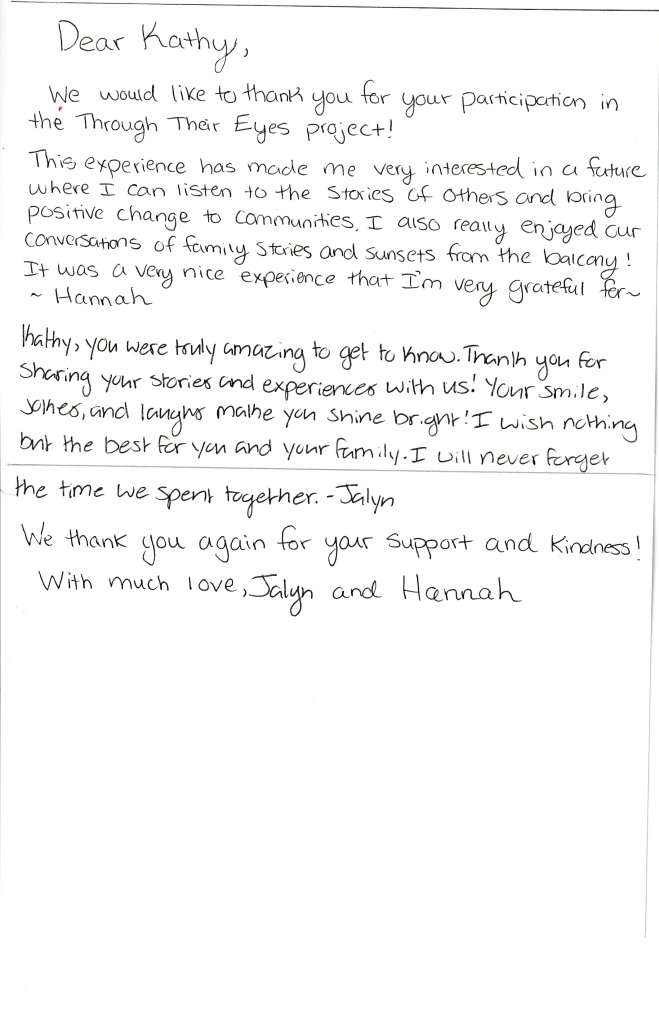 Dear Kathy,
We would like to thank you for your participation in
the Through Their Eyes project!
This experience has made me very interested in a future
where I can listen to the stories of others and bring
positive change to communities. I also really enjoyed our
conversations of family stories and sunsets from the balcony!
It was a very nice experience that I'm very grateful for~
~ Hannah
Kathy, you were truly amazing to get to know. Thank you for
sharing your stories and experiences with us! Your smile,
jokes, and laughs make you shine bright! I wish nothing
but the best for you and your family. I will never forget
the time we spent together. - Jalyn
We thank you again for your support and kindness!
With much love, Jalyn and Hannah